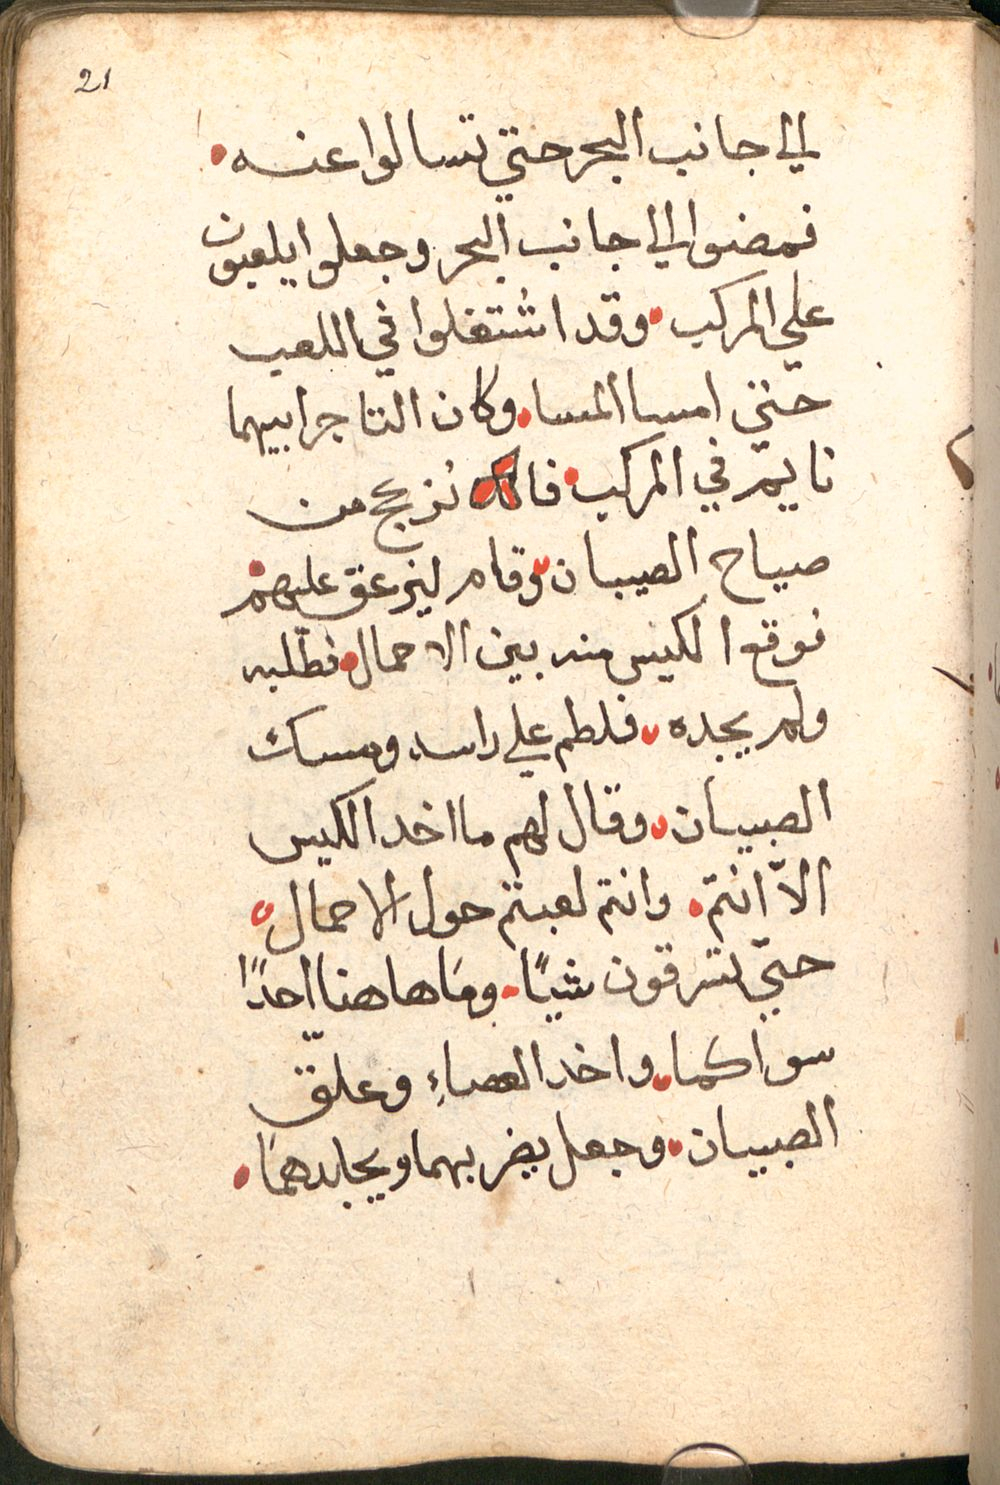 21
الي جانب البحر حتي تسالوا عنه
فمضوا الي جانب البحر وجعلوا يلعبون
علي المركب وقد اشتغلوا في اللعب
حتي امسا المسا وكان التاجر ابيهما
نايم في المركب فانزعج من
صياح الصبيان وقام ليزعق عليهم
فوقع الكيس منه بين الاحمال فطلبه
ولم يجده فلطم علي راسه ومسك
الصبيان وقال لهم ما اخد الكيس
الاّ انتم وانتم لعبتم حول الاحمال
حتّي تسرقون شيًا ومَا هاهنا احدًا
سواكما واخد العصاءِ وعلّق
الصبيان وجعل يضربهما ويجلدهمَا